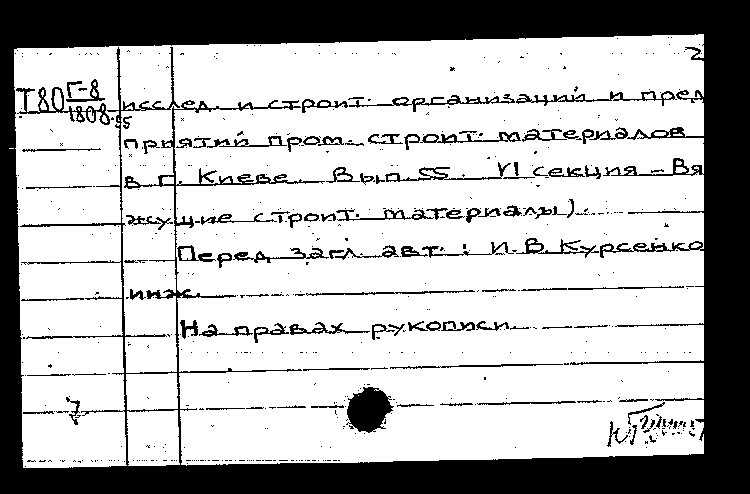 2
Т80 Г-8 исслед. и строит. организаций и пред
1808-55
приятий пром. строит. материалов
в г. Киеве. Вып. 55. VI секция - Вя
жущие строит. материалы).
Перед загл. авт.: И.В. Курсенко
инж.
На правах рукописи.
7